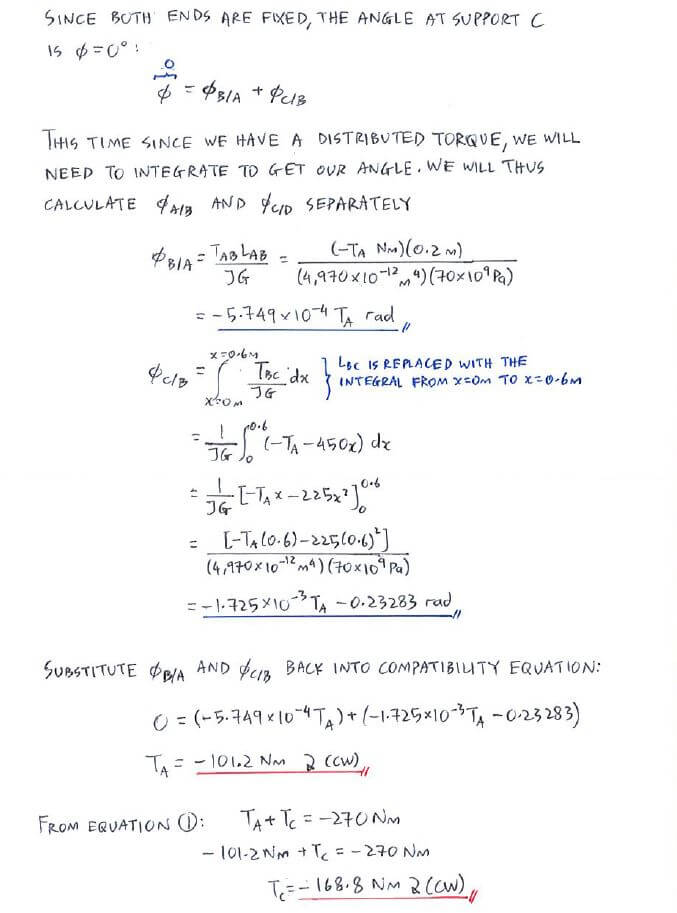 SINCE BOTH ENDS ARE FIXED, THE ANGLE AT SUPPORT C
IS ϕ=0°:
0
ϕ = ϕB/A + ϕC/B
THIS TIME SINCE WE HAVE A DISTRIBUTED TORQUE, WE WILL
NEED TO INTEGRATE TO GET OUR ANGLE. WE WILL THUS
CALCULATE ϕA/B AND ϕC/D SEPARATELY
ϕB/A = TAB LAB / JG = (-TA NM)(0.2 M) / (4,970×10⁻¹² M⁴)(70×10⁹ Pa)
= -5.749×10⁻⁴ TA rad
ϕC/B = ∫ x=0M x=0.6M TBC / JG dx } LBC IS REPLACED WITH THE
INTEGRAL FROM X=0M TO X=0.6M
= 1/JG ∫₀^0.6 (-TA - 450x) dx
= 1/JG [-TA x - 225x²]₀^0.6
= [-TA(0.6) - 225(0.6)²] / (4,970×10⁻¹² M⁴)(70×10⁹ Pa)
= -1.725×10⁻³ TA - 0.23283 rad
SUBSTITUTE ϕB/A AND ϕC/B BACK INTO COMPATIBILITY EQUATION:
0 = (-5.749×10⁻⁴ TA) + (-1.725×10⁻³ TA - 0.23283)
TA = -101.2 NM ⤸ (CW)
FROM EQUATION ①: TA + TC = -270 NM
-101.2 NM + TC = -270 NM
TC = -168.8 NM ⤸ (CW)